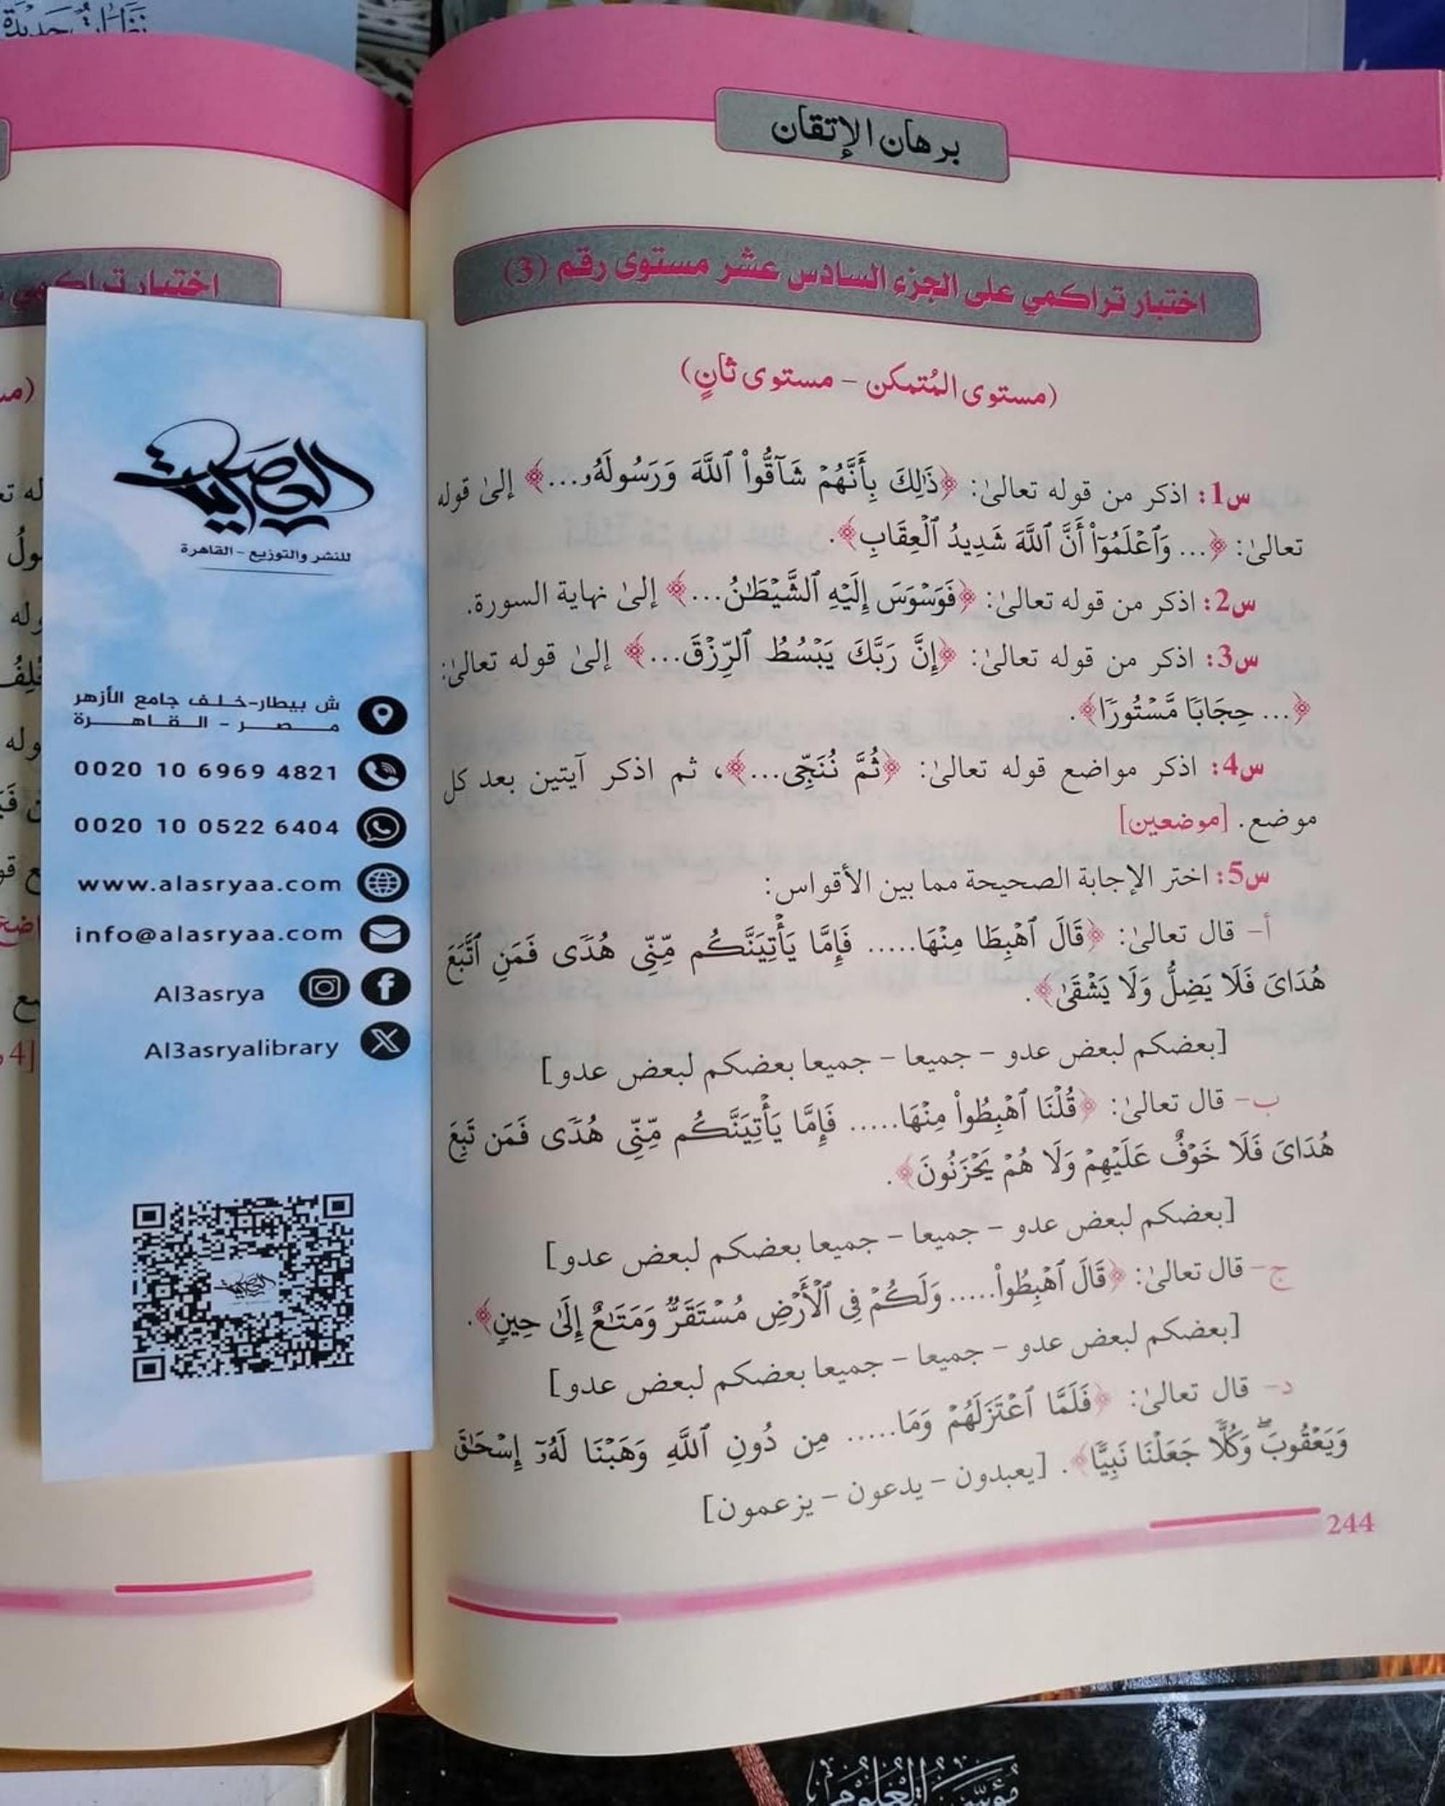 نظرات جديدة
برهان الإتقان
اختبار تراكمي على الجزء السادس عشر مستوى رقم (3)
(مستوى المُتمكن - مستوى ثانٍ)
س1: اذكر من قوله تعالىٰ: ﴿ذَٰلِكَ بِأَنَّهُمۡ شَآقُّواْ ٱللَّهَ وَرَسُولَهُۥ...﴾ إلىٰ قوله
تعالىٰ: ﴿... وَٱعۡلَمُوٓاْ أَنَّ ٱللَّهَ شَدِيدُ ٱلۡعِقَابِ﴾.
س2: اذكر من قوله تعالىٰ: ﴿فَوَسۡوَسَ إِلَيۡهِ ٱلشَّيۡطَٰنُ...﴾ إلىٰ نهاية السورة.
س3: اذكر من قوله تعالىٰ: ﴿إِنَّ رَبَّكَ يَبۡسُطُ ٱلرِّزۡقَ...﴾ إلىٰ قوله تعالىٰ:
﴿... حِجَابٗا مَّسۡتُورٗا﴾.
س4: اذكر مواضع قوله تعالىٰ: ﴿ثُمَّ نُنَجِّى...﴾، ثم اذكر آيتين بعد كل
موضع. [موضعين]
س5: اختر الإجابة الصحيحة مما بين الأقواس:
أ- قال تعالىٰ: ﴿قَالَ ٱهۡبِطَا مِنۡهَا..... فَإِمَّا يَأۡتِيَنَّكُم مِّنِّى هُدٗى فَمَنِ ٱتَّبَعَ
هُدَاىَ فَلَا يَضِلُّ وَلَا يَشۡقَىٰ﴾.
[بعضكم لبعض عدو - جميعا - جميعا بعضكم لبعض عدو]
ب- قال تعالىٰ: ﴿قُلۡنَا ٱهۡبِطُواْ مِنۡهَا..... فَإِمَّا يَأۡتِيَنَّكُم مِّنِّى هُدٗى فَمَن تَبِعَ
هُدَاىَ فَلَا خَوۡفٌ عَلَيۡهِمۡ وَلَا هُمۡ يَحۡزَنُونَ﴾.
[بعضكم لبعض عدو - جميعا - جميعا بعضكم لبعض عدو]
ج- قال تعالىٰ: ﴿قَالَ ٱهۡبِطُواْ..... وَلَكُمۡ فِى ٱلۡأَرۡضِ مُسۡتَقَرّٞ وَمَتَٰعٌ إِلَىٰ حِينٖ﴾.
[بعضكم لبعض عدو - جميعا - جميعا بعضكم لبعض عدو]
د- قال تعالىٰ: ﴿فَلَمَّا ٱعۡتَزَلَهُمۡ وَمَا..... مِن دُونِ ٱللَّهِ وَهَبۡنَا لَهُۥٓ إِسۡحَٰقَ
وَيَعۡقُوبَۖ وَكُلّٗا جَعَلۡنَا نَبِيّٗا﴾. [يعبدون - يدعون - يزعمون]
244
اختبار تراكمي
العصرية
للنشر والتوزيع - القاهرة
ش بيطار-خلف جامع الأزهر
مصر - القاهرة
0020 10 6969 4821
0020 10 0522 6404
www.alasryaa.com
info@alasryaa.com
Al3asrya
Al3asryalibrary
مؤسسة العلوم